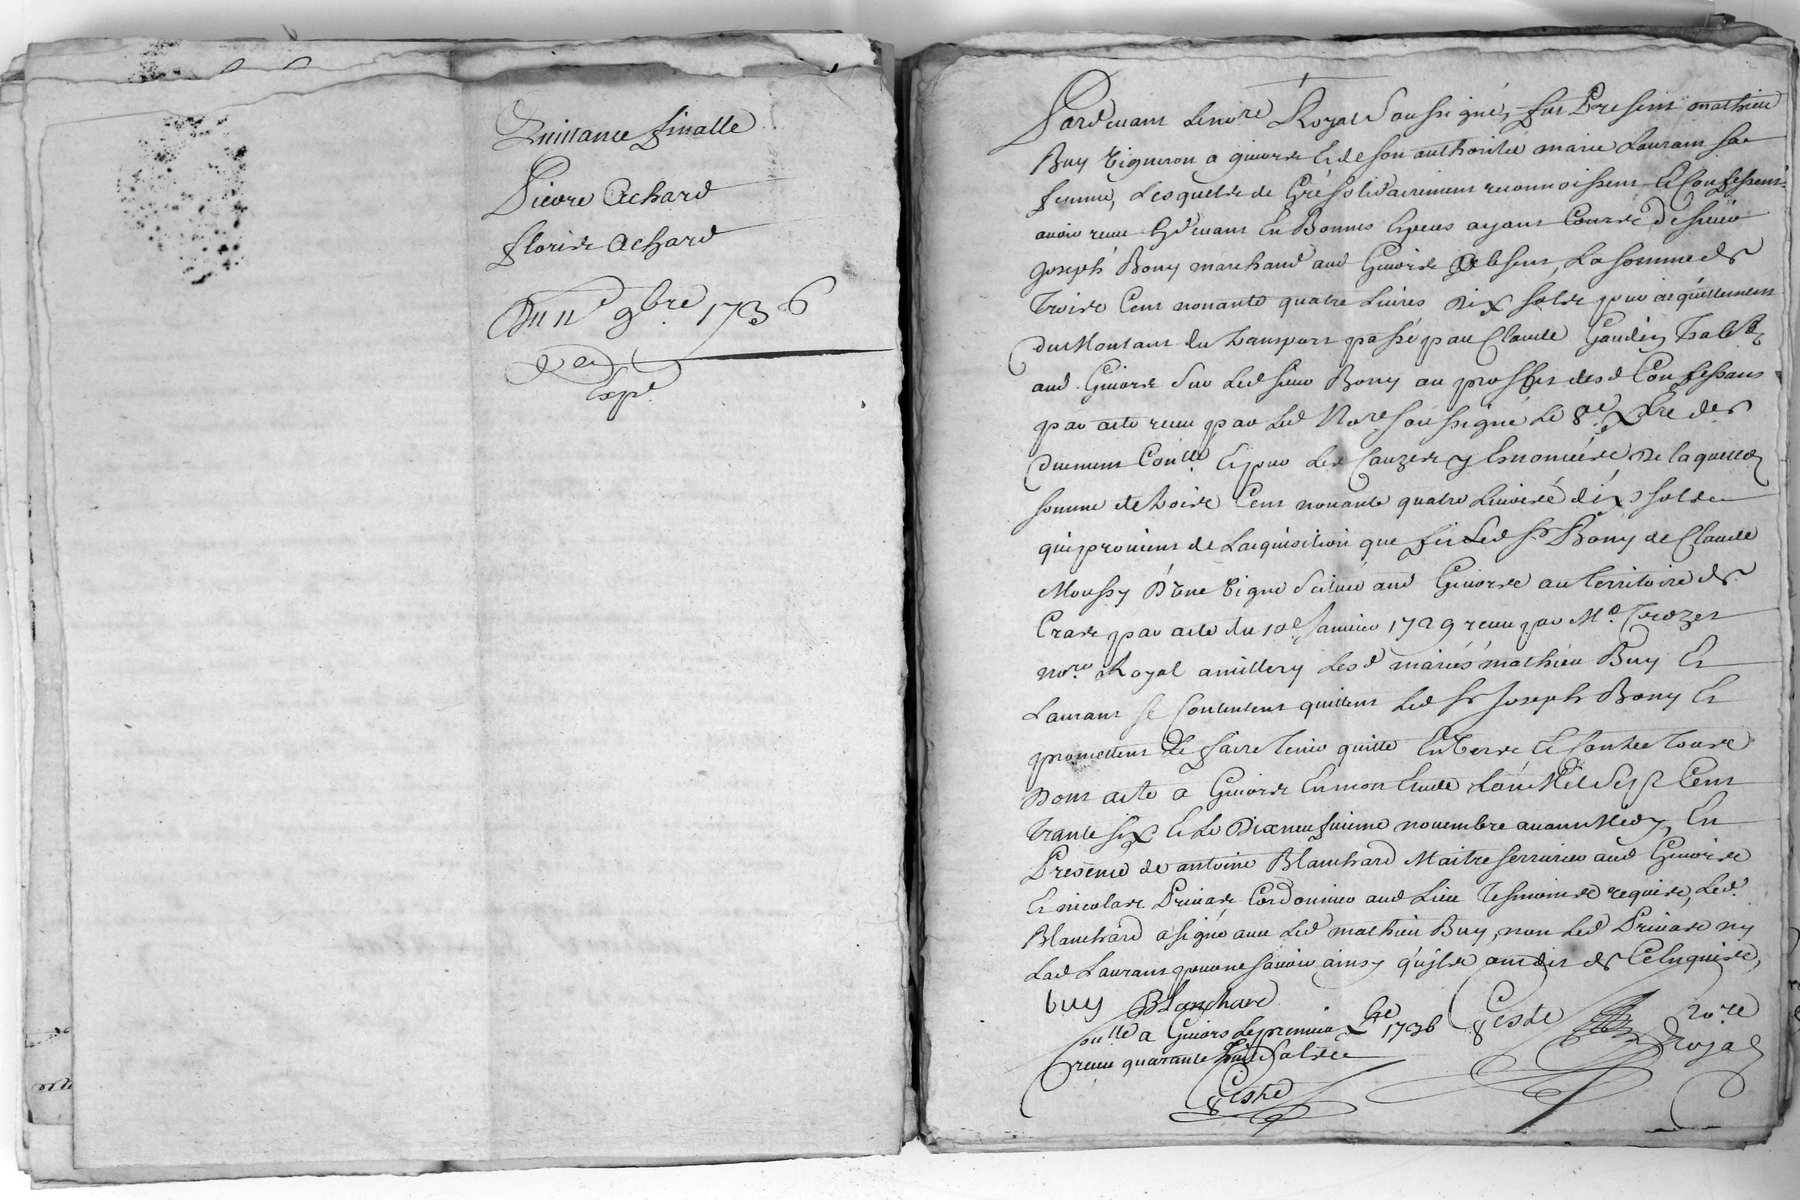 Quittance finalle
Pierre Achard
Floris Achard
Du 11e 9bre 1736
Exp.
Pardevant le nore Royal Soussigné, fut Present mathieu
Buy Vigneron a givors Et de son authorité marie Laurans sa
femme, Lesquels de Gré solidairement reconnoissent Et Confessent
avoir reçeu Cydevant En Bonnes Especes ayant Cours de sieur
Joseph Bony marchand aud Givors absent, La somme de
Trois Cent nonante quatre Livres Dix sols pour acquittement
Du Montant du transport passé par Claude Gaudin
aud Givors sur Led sieur Bony au proffit desd Confessans
par acte reçeu par Led Nore soussigné Le 8e xbre
Duement Conllé Et pour Les Causes y Enoncées De laquelle
somme de trois Cent nonante quatre Livres dix sols
qui provient de Lacquisition que fit Led Sr Bony de Claude
Moussy D'une Vigne scituée aud Givors au Territoire de
Cras par acte du 10e Janvier 1729 reçeu par Me Crozet
nore Royal a millery Lesd mariés mathieu Buy Et
Laurans se Contentent quittent Led Sr Joseph Bony Et
promettent Le faire tenir quitte Envers Et Contre tous
Dont acte a Givors En mon Etude L'an Mil Sept Cent
Trante six Et Le Dixneufvieme novembre avant Midy, En
Presence de antoine Blanchard Maitre serrurier aud Givors
Et nicolas Privas Cordonnier aud Lieu Tesmoins requis, Led
Blanchard a signé avec Led mathieu Buy, non Led Privas ny
Lad Laurans pour ne sçavoir ainsy qu'ils ont dit de Ce Enquis,
buy Blanchard
Conllé a Givors Le premier xbre 1736
reçeu quarante huit sols
nore
Royal